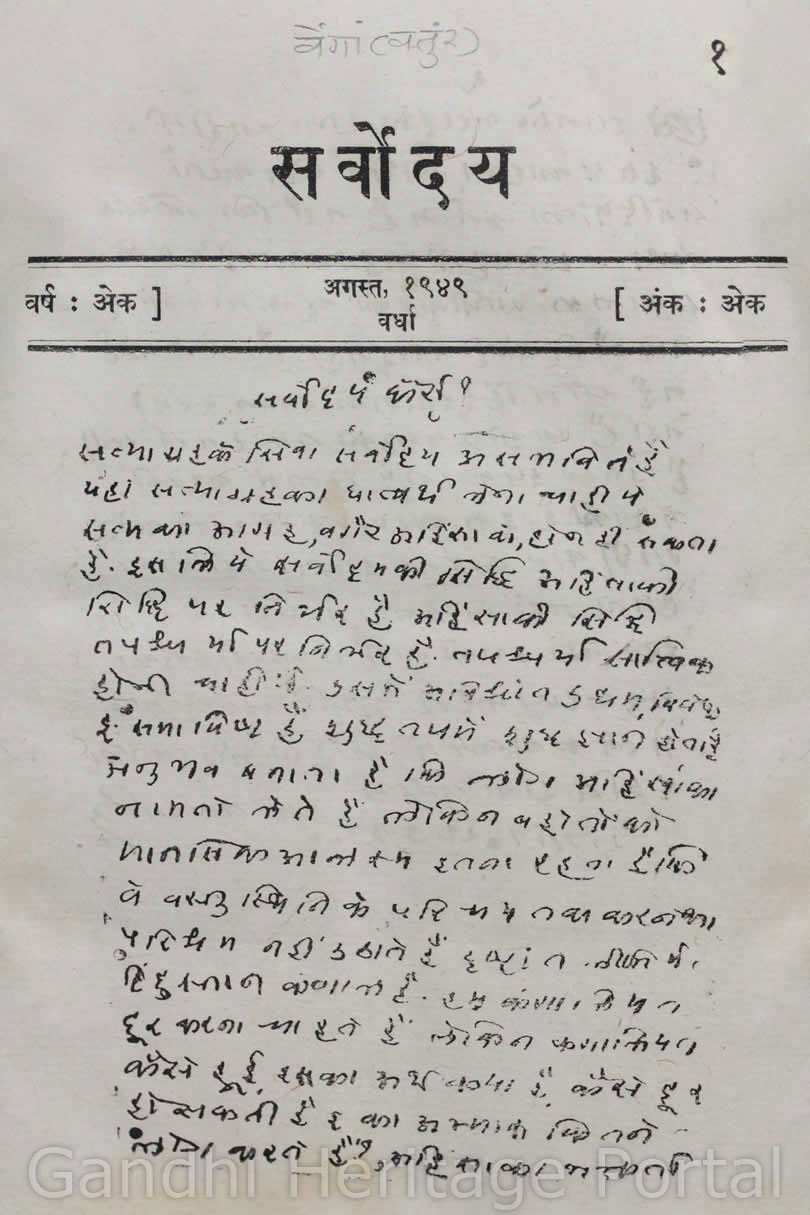 १
सर्वोदय
वर्ष : अेक ]
अगस्त, १९४९
वर्धा
[ अंक : अेक
सत्याग्रहके सिवा सर्वोदय असंभवित है
यहां सत्याग्रहका धात्वर्थ लेना चाहीये
सत्यका आग्रह, बगैर अहिंसाके, हो नहीं सकता
है. इसलिये सर्वोदयकी सिद्धि अहिंसाकी
सिद्धि पर निर्भर है अहिंसाकी सिद्धि
तपश्चर्या पर निर्भर है. तपश्चर्या सात्त्विक
होनी चाहीये. उसमें अविश्रांत उद्यम, विवेक
इ. समाविष्ट है शुद्ध तपमें शुद्ध ज्ञान होता है
अनुभव बताता है कि लोग अहिंसाका
नाम तो लेते हैं लेकिन बहोतोंको
मानसिक आलस्य इतना रहता है कि
वे वस्तुस्थितिके परिचय तक करनेका
परिश्रम नहीं उठाते हैं दृष्टांत लीजिये.
हिंदुस्तान कंगाल है. हम कंगालियत
दूर करना चाहते हैं लेकिन कंगालियत
कैसे हूई, इसका अर्थ क्या है, कैसे दूर
हो सकती है इ का अभ्यास कितने
लोग करते हैं?, अहिंसाका भक्त तो
Gandhi Heritage Portal